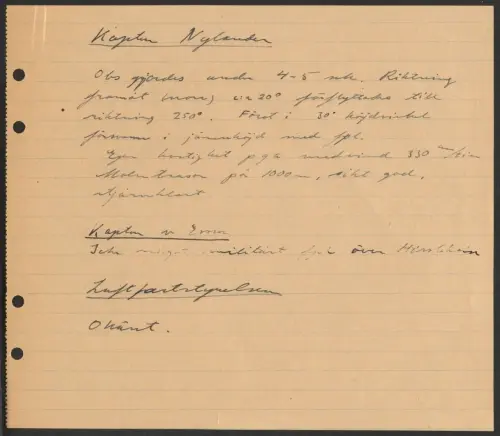 Kapten Nylander
Obs gjordes under 4-5 sek. Riktning
framåt (norr) ca 20° förflyttades till
riktning 250°. Först i 30° höjdvinkel
försvann i jämnhöjd med fpl.
Egen hastighet p g a medvind 350
Molntrasor på 1000 m, sikt god,
stjärnklart
Kapten v
Icke något militärt fpl över
Luftfartsstyrelsen
Okänt.